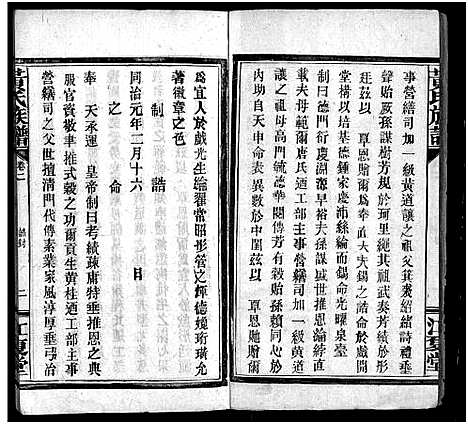 黃氏族譜
事營繕司加一級黃道讓之祖父箕裘紹緒詩禮垂
聲厥孫謀樹芳規於珂里繩其祖武奏芳績於彤
廷茲以　覃恩貤贈爾爲奉直大夫錫之誥命於戲開
堂搆以培基德鍾家慶沛絲綸而錫命光曜泉臺
制曰德門衍慶淵源早裕夫孫謀盛世推恩綸綍直
隆於祖德爾唐氏迺工部主事營繕司加一級黃道
讓之祖母高門毓德華閥傳芳有穀貽孫賴同心於
內助自天申命表異數於中閨茲以　覃恩貤贈爾
江夏堂
爲宜人於戲光生綸翟常昭彤管之輝德嬈珩璜允
著徽章之也
制　誥
同治元年二月十六　日
之　命
奉　天承運　皇帝制曰考績疎庸特垂推恩之典
服官資敬聿推式穀之功爾貢生黃桂迺工部主事
營繕司之父世擅清門代傳素業家風淳厚垂弓治
黃氏族譜
卷二
誥封
二
江夏堂